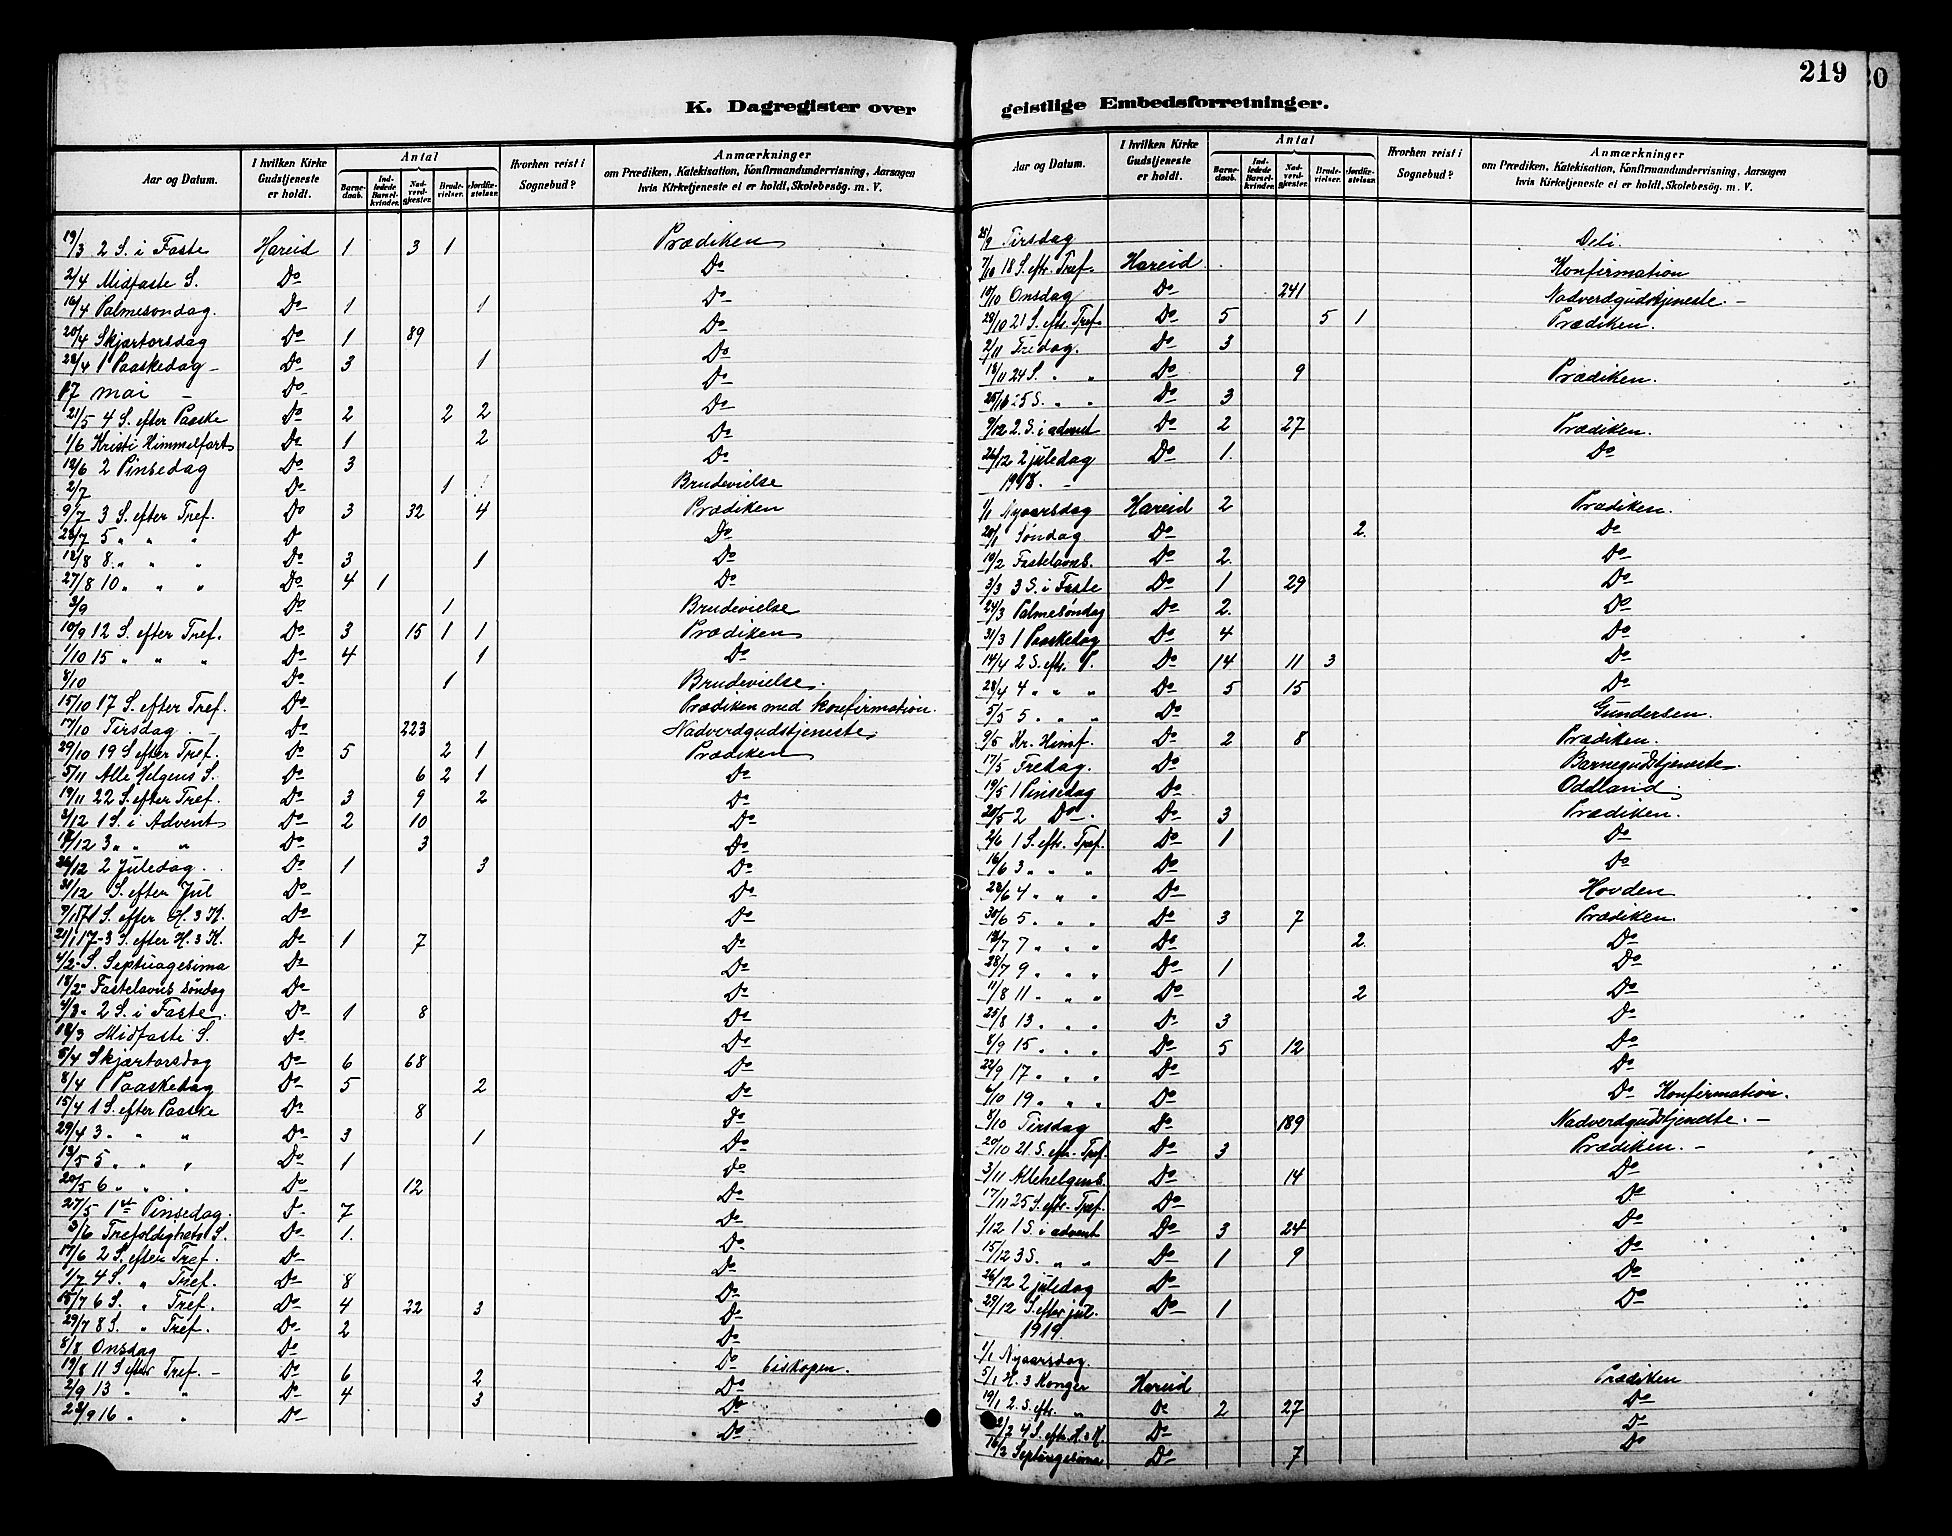 219
K. Dagregister over
geistlige Embedsforretninger.
Aar og Datum. | I hvilken Kirke Gudstjeneste er holdt. | Antal | Barnedaab. | Indledede Barselkvinder. | Nadverdgjester. | Brudevielser. | Jordfæstelser. | Hvorhen reist i Sognebud? | Anmærkninger om Prædiken, Katekisation, Konfirmandundervisning, Aarsagen hvis Kirketjeneste ei er holdt, Skolebesøg. m. V.
19/3 2 S. i Faste Hareid 1 3 1 Prædiken
2/4 Midfaste S. Do Do
16/4 Palmesøndag. Do 1 1 Do
20/4 Skjærtorsdag Do 1 89 Do
23/4 1 Paaskedag – Do 3 1 Do
17 mai – Do Do
21/5 4 S. efter Paaske Do 2 2 2 Do
1/6 Kristi Himmelfart Do 1 2 Do
12/6 2 Pinsedag Do 3 Do
2/7 Do 1 Brudevielse
9/7 3 S. efter Tref. Do 3 32 4 Prædiken
23/7 5 " " " Do Do
13/8 8. " " " Do 3 1 Do
27/8 10 " " " Do 4 1 Do
3/9 Do 1 Brudevielse
10/9 12 S. efter Tref. Do 3 15 1 1 Prædiken
1/10 15 " " " Do 4 1 Do
8/10 Do 1 Brudevielse.
15/10 17 S. efter Tref. Do Prædiken med konfirmation.
17/10 Tirsdag Do 223 Nadverdgudstjeneste
29/10 19 S efter Tref. Do 5 2 1 Prædiken
5/11 Alle Helgens S. Do 6 2 1 Do
19/11 22 S. efter Tref. Do 3 9 2 Do
3/12 1 S. i Advent Do 2 10 Do
17/12 3 " " " Do 3 Do
26/12 2 Juledag Do 1 3 Do
31/12 S. efter Jul Do Do
7/1 17 1 S. efter H. 3 K. Do Do
21/1 17 – 3 S. efter H. 3 K. Do 1 7 Do
4/2 – S. Septuagesima Do Do
18/2 – Fastelavns søndag Do Do
4/3 – 2 S. i Faste Do 1 8 Do
18/3 Midfaste S. Do Do
5/4 Skjærtorsdag Do 6 68 Do
8/4 1 Paaskedag Do 5 2 Do
15/4 1 S. efter Paaske Do 8 Do
29/4 3 " " " Do 3 1 Do
13/5 5 " " " Do 1 Do
20/5 6 " " " Do 12 Do
27/5 1st Pinsedag. Do 7 Do
3/6 Trefoldigheds S. Do 1. Do
17/6 2 S. efter Tref. Do Do
1/7 4 S. " Tref. Do 8 Do
15/7 6 S. " Tref. Do 4 22 3 Do
29/7 8 S. " Tref. Do 2 Do
8/8 Onsdag Do Do biskopen.
19/8 11 S efter Tref. – Do 6 2 Do
2/9 13 " " Do 4 3 Do
23/9 16 " " Do Do
Aar og Datum. | I hvilken Kirke Gudstjeneste er holdt. | Antal | Barnedaab. | Indledede Barselkvinder. | Nadverdgjester. | Brudevielser. | Jordfæstelser. | Hvorhen reist i Sognebud? | Anmærkninger om Prædiken, Katekisation, Konfirmandundervisning, Aarsagen hvis Kirketjeneste ei er holdt, Skolebesøg. m. V.
25/9 Tirsdag Deli.
7/10 18 S. eftr. Tref. Hareid Konfirmation
10/10 Onsdag Do 241 Nadverdgudstjeneste. –
28/10 21 S. eftr. Tref. Do 5 5 1 Prædiken.
2/11 Fredag. Do 3
18/11 24 S. " " Do 9 Prædiken.
25/11 25 S. " " Do 3
9/12 2. S. i advent Do 2 27 Prædiken.
26/12 2 juledag Do 1. Do
1918. –
1/1 Nyaarsdag Hareid 2 Prædiken.
20/1 Søndag Do 2. Do
10/2 Fastelavns. Do 2. Do
3/3 3 S. i Faste Do 1 29 Do
24/3 Palmesøndag Do 2. Do
31/3 1 Paaskedag Do 4 Do
14/4 2 S. eftr. P. Do 14 11 3 Do
28/4 4 " " " Do 5 15 Do
5/5 5. " " Do Gundersen.
9/5 Kr. Himf. Do 2 8 Prædiken.
17/5 Fredag. Do Barnegudstjeneste.
19/5 1 Pinsedag Do Oddland
20/5 2 Do Do 3 Prædiken.
2/6 1 S. eftr. Tref. Do 1 Do
16/6 3 " " " Do Do
23/6 4 " " " Do Hovden
30/6 5 " " " Do 3 7 Prædiken.
14/7 7 " " " Do 2. Do
28/7 9 " " " Do 1 Do
11/8 11 " " " Do 2 Do
25/8 13 " " " Do 3 Do
8/9 15 " " " Do 5 12 Do
22/9 17 " " " Do Do
6/10 19 " " " Do Do Konfirmation.
8/10 Tirsdag Do 189 Nadverdgudstjeneste. –
20/10 21 S. eftr. Tref. Do 3 Prædiken. –
3/11 Allehelgens. Do 14 Do
17/11 25 S. eftr. Tref. Do Do
1/12 1 S. i advent Do 3 24 Do
15/12 3 S. " " Do 1 9 Do
26/12 2 juledag Do Do
29/12 S. efter jul. Do 1 Do
1919.
1/1 Nyaarsdag.
5/1 H. 3 Konger Hareid Prædiken
19/1 2. S. eftr. " Do 2 27 Do
2/2 4 S. eftr. H. 3 K. Do Do
16/2 Septuagesima Do 7 Do